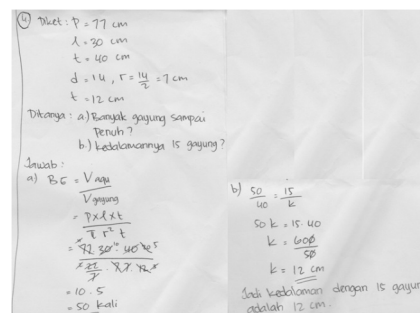 4 Diket : P = 77 cm
l = 30 cm
t = 40 cm
d = 14, r = 14/2 = 7 cm
t = 12 cm
Ditanya : a.) Banyak gayung sampai
penuh ?
b.) Kedalamannya 15 gayung ?
Jawab :
a) BG = V aqu / V gayung
= p x l x t / π r² t
= 77 . 30 . 40 / 22/7 . 7.7 . 12
= 10 . 5
= 50 kali
b) 50/40 = 15/k
50 k = 15 . 40
k = 600/50
k = 12 cm
Jadi kedalaman dengan 15 gayung
adalah 12 cm.